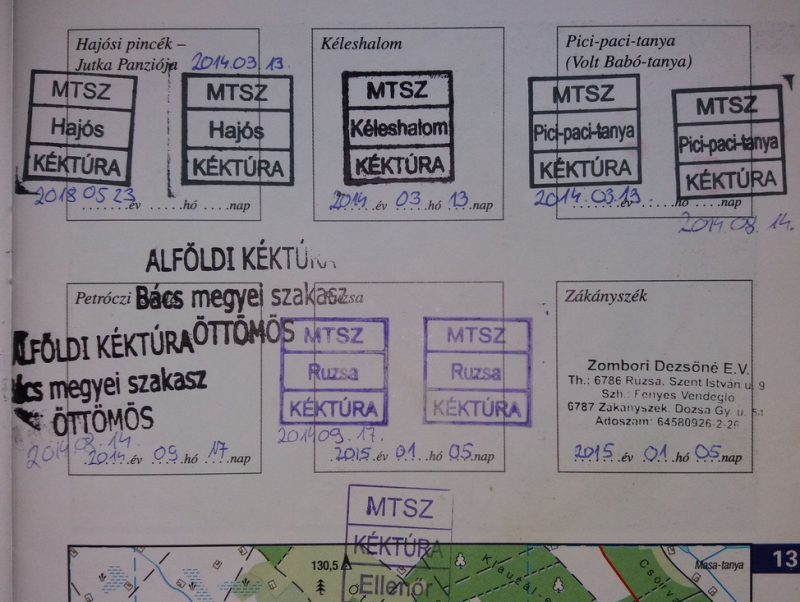 Hajósi pincék –
Jutka Panziója 2014.03.13.
MTSZ
Hajós
KÉKTÚRA
2018 05 23
MTSZ
Hajós
KÉKTÚRA
év hó nap
Kéleshalom
MTSZ
Kéleshalom
KÉKTÚRA
2014 év 03 hó 13 nap
Pici-paci-tanya
(Volt Babó-tanya)
MTSZ
Pici-paci-tanya
KÉKTÚRA
2014.03.13
év hó nap
MTSZ
Pici-paci-tanya
KÉKTÚRA
2014.08.14.
Petróczi
ALFÖLDI KÉKTÚRA
Bács megyei szakasz
ÖTTÖMÖS
ALFÖLDI KÉKTÚRA
Bács megyei szakasz
ÖTTÖMÖS
2014.08.14.
2014 év 09 hó 17 nap
Ruzsa
MTSZ
Ruzsa
KÉKTÚRA
2014 09. 17.
MTSZ
Ruzsa
KÉKTÚRA
2015 év 01 hó 05 nap
Zákányszék
Zombori Dezsöné E.V.
Th.: 6786 Ruzsa, Szent István u. 9
Szh.: Fenyes Vendeglo
6787 Zákányszék, Dozsa Gy. u. 54
Adoszam: 64580926-2-26
2015 év 01 hó 05 nap
MTSZ
KÉKTÚRA
Ellenőr
130,5
Klauzál-e
Csorva
Masa-tanya
13